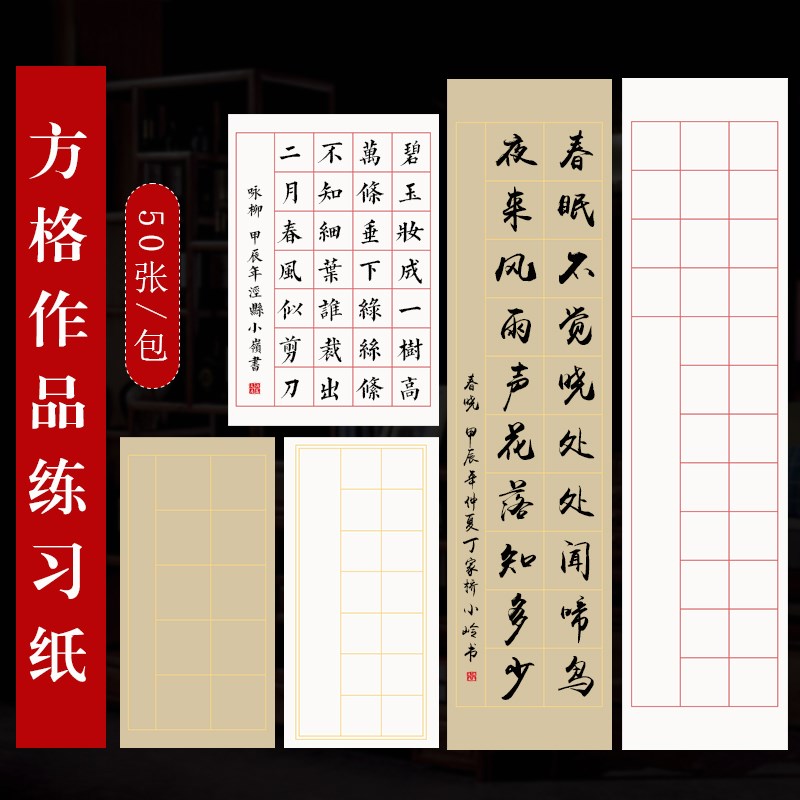 方格作品练习纸
50张/包
碧玉妝成一樹高
萬條垂下綠絲條
不知細葉誰裁出
二月春風似剪刀
咏柳 甲辰年涇縣小嶺書
春眠不觉晓处处闻啼鸟
夜来风雨声花落知多少
春晓 甲辰年仲夏丁家桥小岭书